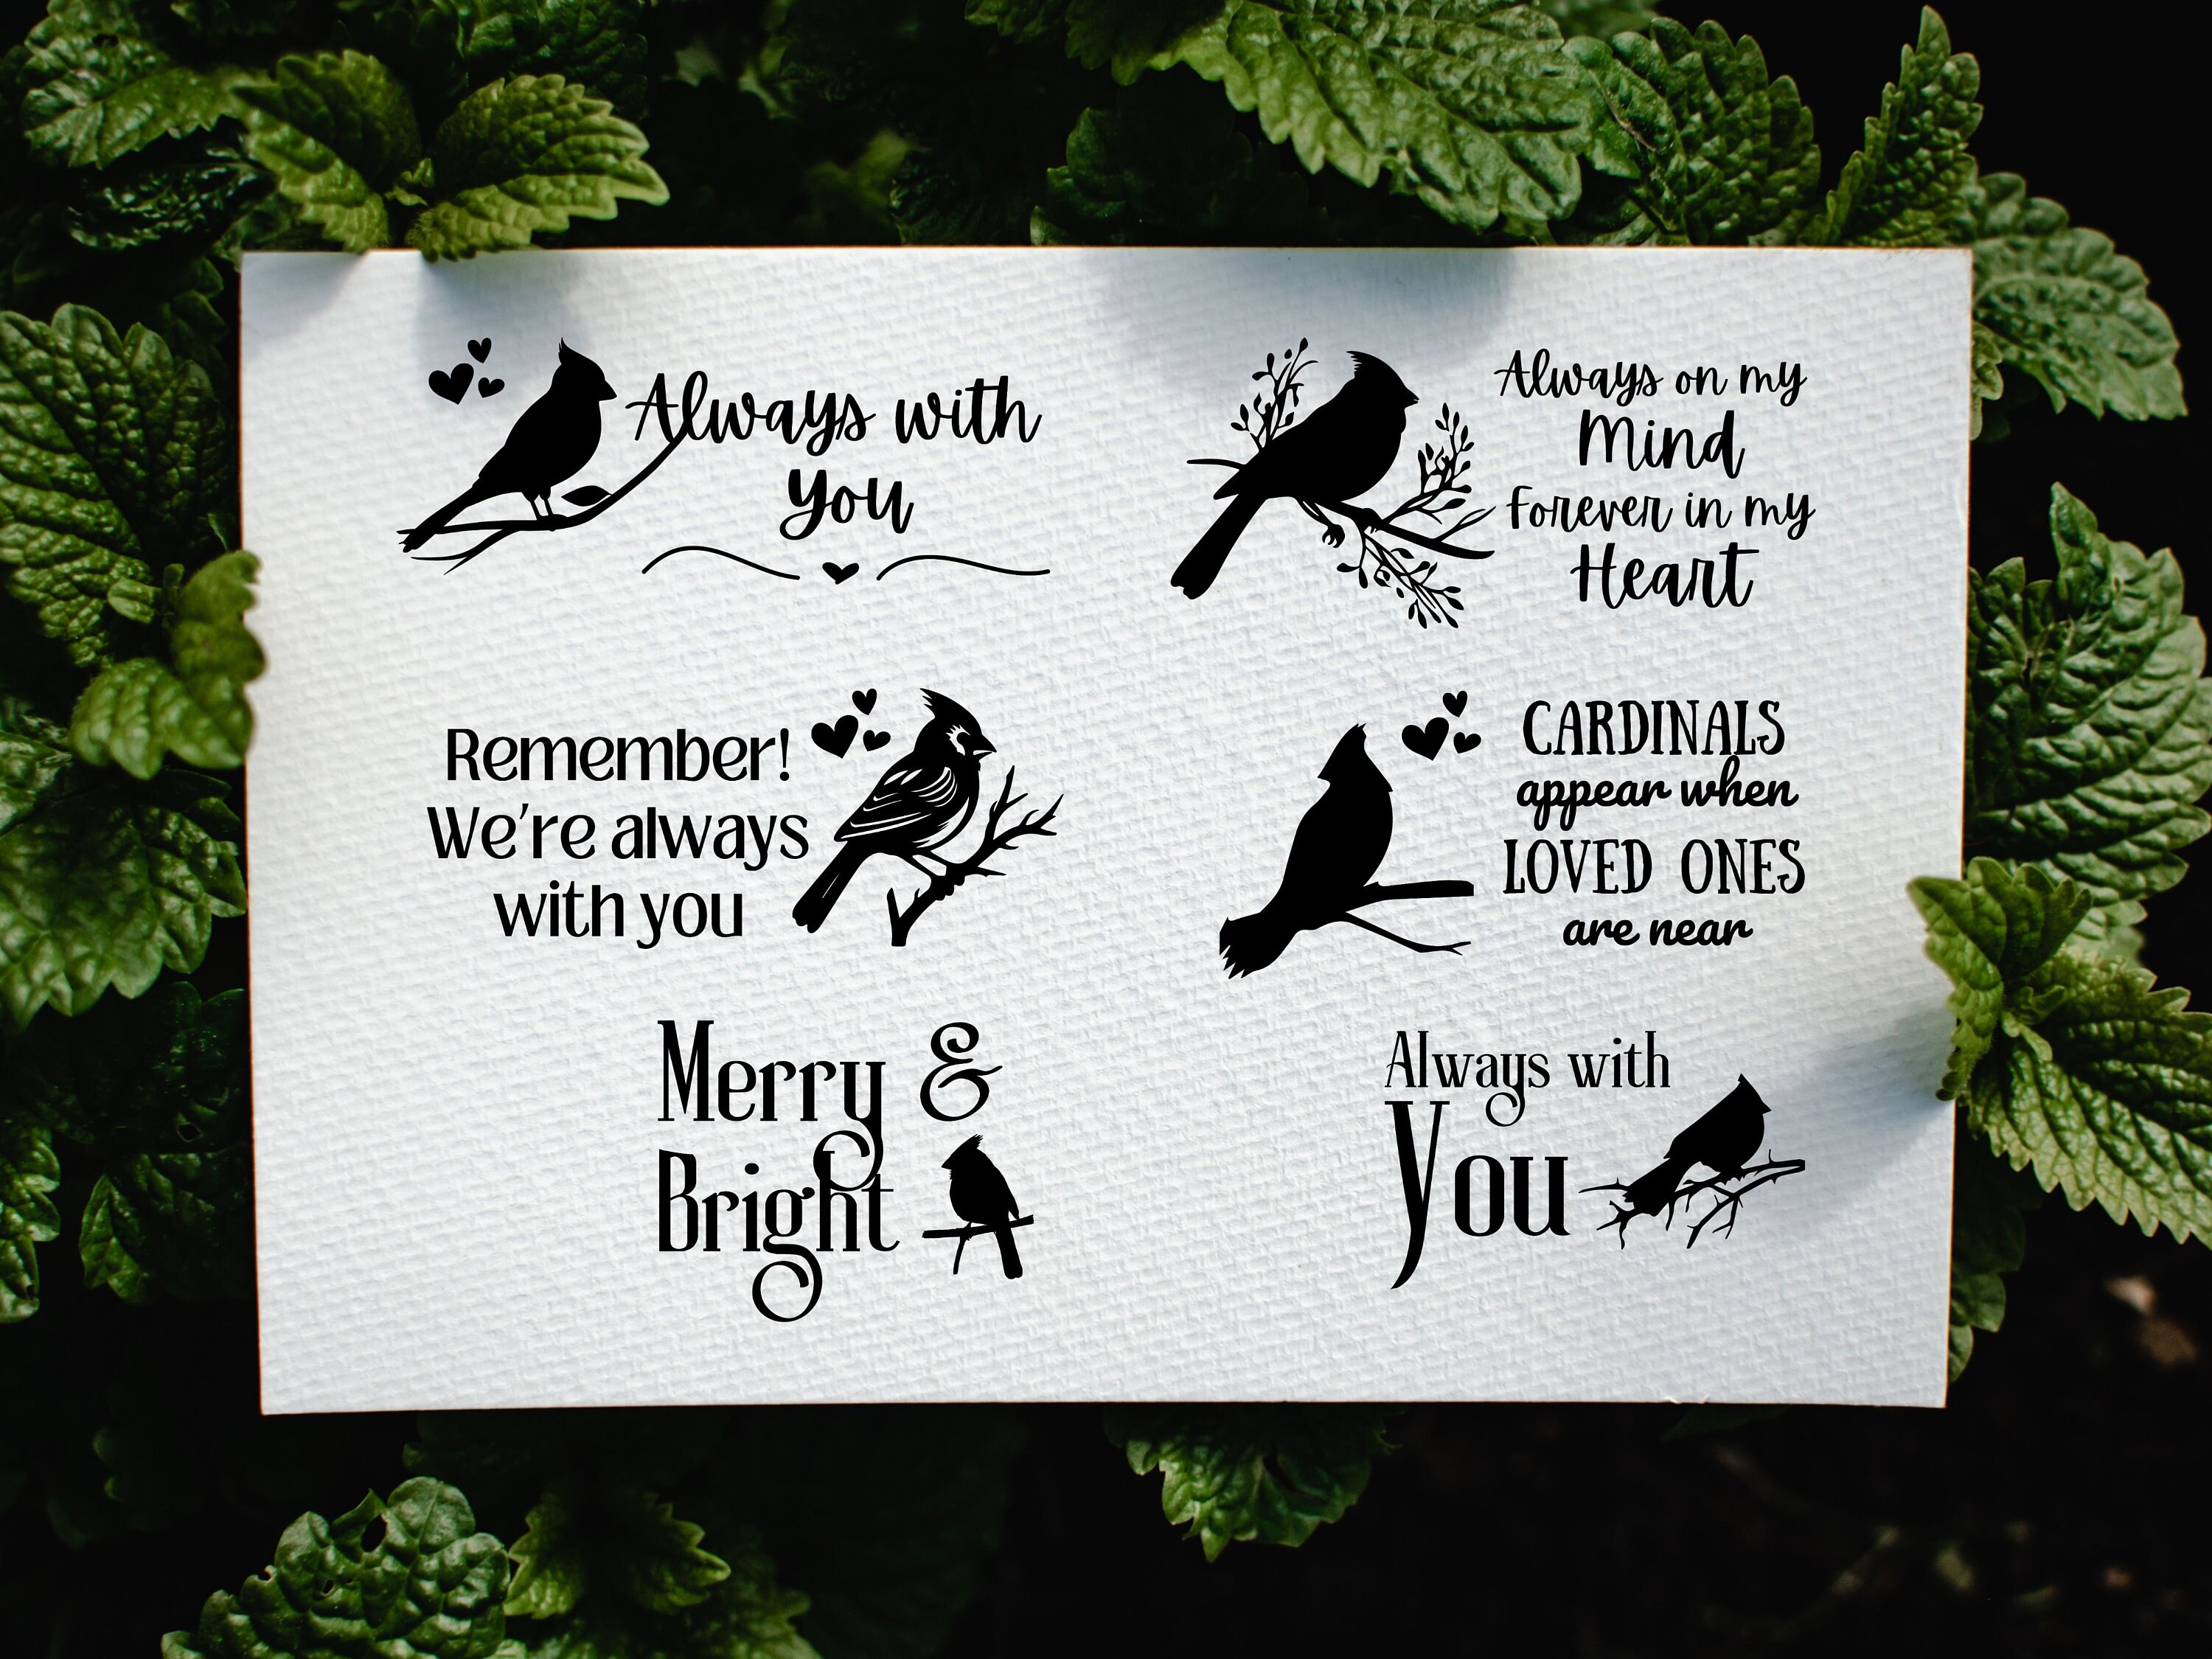 Always with
You
Always on my
Mind
Forever in my
Heart
Remember!
We're always
with you
CARDINALS
appear when
LOVED ONES
are near
Merry &
Bright
Always with
You